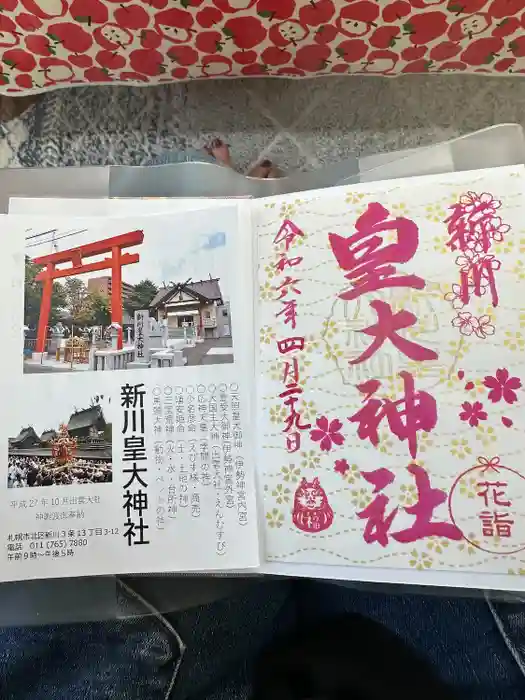 新川
皇大神社
令和六年四月二十九日
花詣
○天照皇大御神（伊勢神宮内宮）
○豊受大御神（伊勢神宮外宮）
○大国主大神（出雲大社・えんむすび）
○応神天皇（学問の祖）
○小名彦命（えびす様・商売）
○埴安姫命（土・土地の神）
○三宝荒神（火・水・台所神）
○馬頭大神（動物・ペットの神）
新川皇大神社
平成27年10月出雲大社
神謝渡御奉納
札幌市北区新川3条13丁目3-12
電話 011(765)7880
午前9時〜午後5時